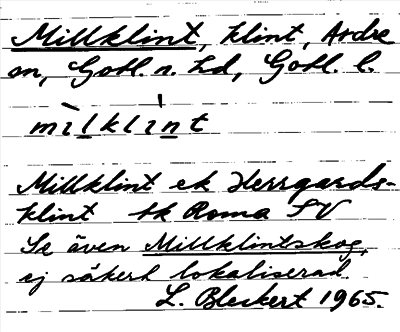 Millklint, klint, Ardre
sn, Gotl. n. hd, Gotl. l.
mìlklìnt
Millklint ek Herrgards-
klint tk Roma SV
Se även Millklintskog,
ej säkert lokaliserad.
L. Bleckert 1965.